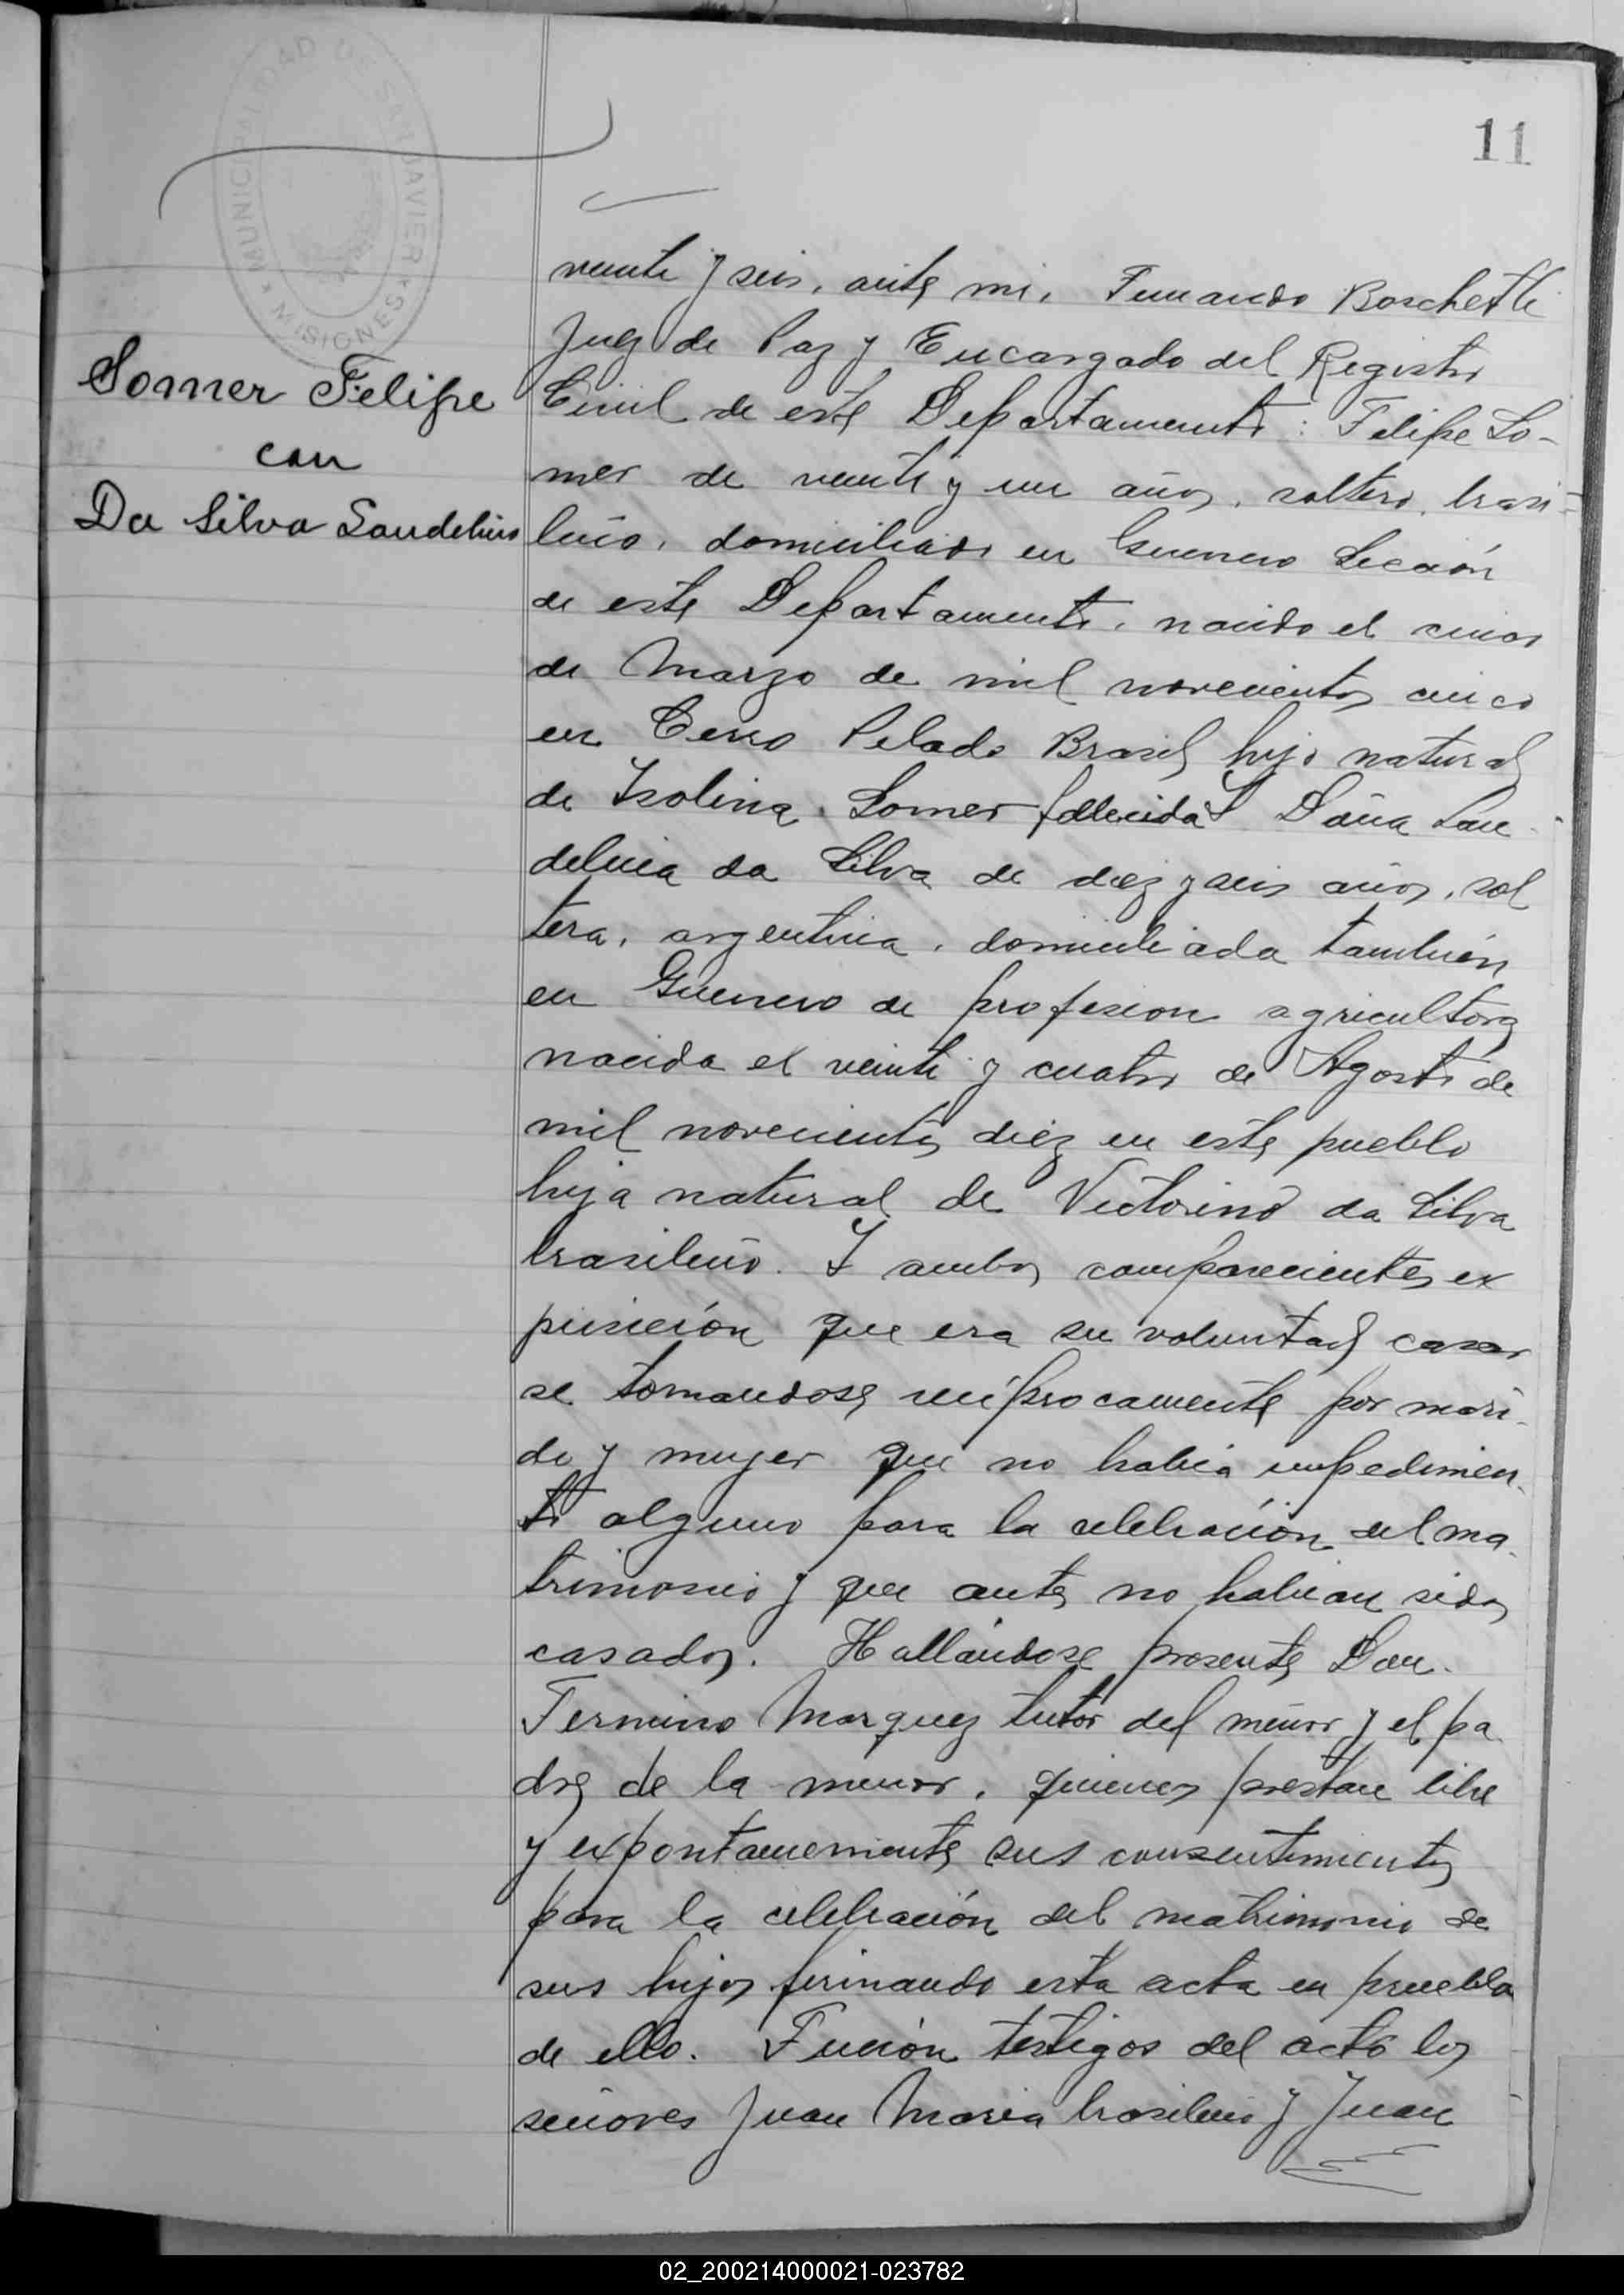 11
MUNICIPALIDAD DE SAN JAVIER
* MISIONES *
Somer Felipe
con
Da Silva Laudelino
veinte y seis, ante mi, Fernando Boschetti
Juez de Paz y Encargado del Registro
Civil de este Departamento: Felipe So-
mer de veinte y un años, soltero, brasi-
leño, domiciliado en Guerrero Sección
de este Departamento, nacido el cinco
de Marzo de mil novecientos cinco
en Cerro Pelado Brasil hijo natural
de Isolina Somer fallecida Doña Lau
delina da Silva de diez y seis años, sol
tera, argentina, domiciliada también
en Guerrero de profesion agricultora
nacida el veinte y cuatro de Agosto de
mil novecientos diez en este pueblo
hija natural de Victorino da Silva
brasileño. Y ambos comparecientes ex
pusieron que era su voluntad casar
se tomandose reciprocamente por mari-
do y mujer que no habia impedimen-
to alguno para la celebración del ma-
trimonio y que antes no habian sido
casados. Hallándose presente Don
Fermino Marquez tutor del menor y el pa
dre de la menor, quienes prestan libre
y expontanemente sus consentimientos
para la celebración del matrimonio de
sus hijos firmando esta acta en prueba
de ello. Fueron testigos del acto los
señores Juan Maria brasileño y Juan
02_200214000021-023782